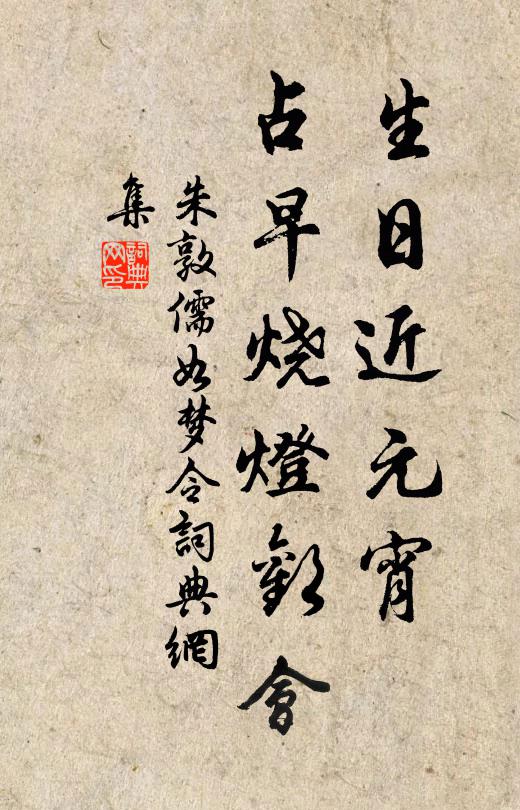 生日近元宵
占早烧燈歡會
朱敦儒如梦令詞典網
集
詞典
网印